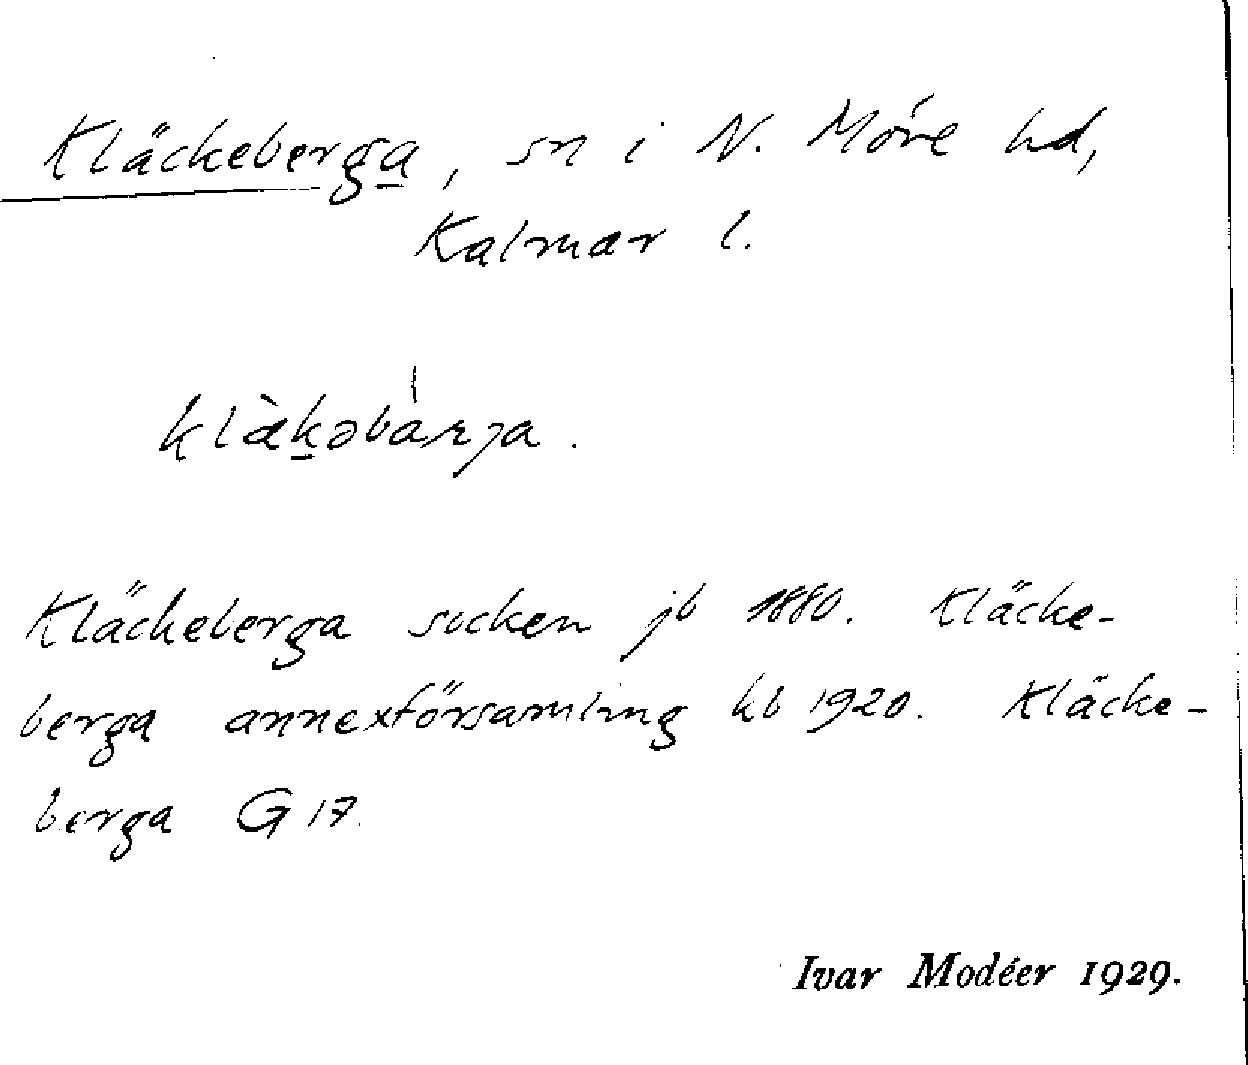 Kläckeberga, sn i N. Möre hd,
Kalmar l.
klàkəbárja.
Kläckeberga socken jb 1880. Kläcke-
berga annexförsamling kb 1920. Kläcke-
berga G 17.
Ivar Modéer 1929.